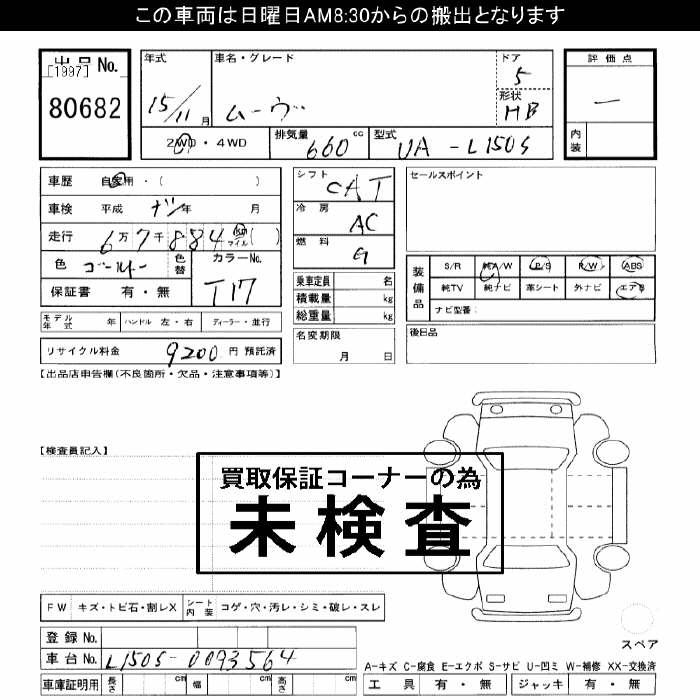 この車両は日曜日AM8:30からの搬出となります
出品 No.
[1997]
80682
年式
15/11 月
車名・グレード
ムーヴ
ドア
5
形状
HB
評価点
内装
2WD ・ 4WD
排気量 660 cc
型式 UA - L150S
車歴 自家用 ・ ( )
車検 平成 ナシ 年 月
走行 6 万 7 千 8 8 4 km マイル ( )
色 ゴールド 色替
カラーNo. T17
保証書 有 ・ 無
シフト CAT
冷房 AC
燃料 G
セールスポイント
乗車定員 名
積載量 kg
総重量 kg
装備品
S/R 純A/W P/S R/W ABS
純TV 純ナビ 革シート 外ナビ エアB
ナビ型番:
モデル年式 年 ハンドル 左・右 ディーラー・並行
名変期限
月 日
後日品
リサイクル料金 9200 円 預託済
【出品店申告欄(不良箇所・欠品・注意事項等)】
【検査員記入】
買取保証コーナーの為
未検査
FW キズ・トビ石・割レX シート内装 コゲ・穴・汚レ・シミ・破レ・スレ
スペア
登録 No.
車台 No. L150S-0093564
A-キズ C-腐食 E-エクボ S-サビ U-凹ミ W-補修 XX-交換済
車庫証明用 長さ cm 幅 cm 高さ cm
工具 有 ・ 無 ジャッキ 有 ・ 無